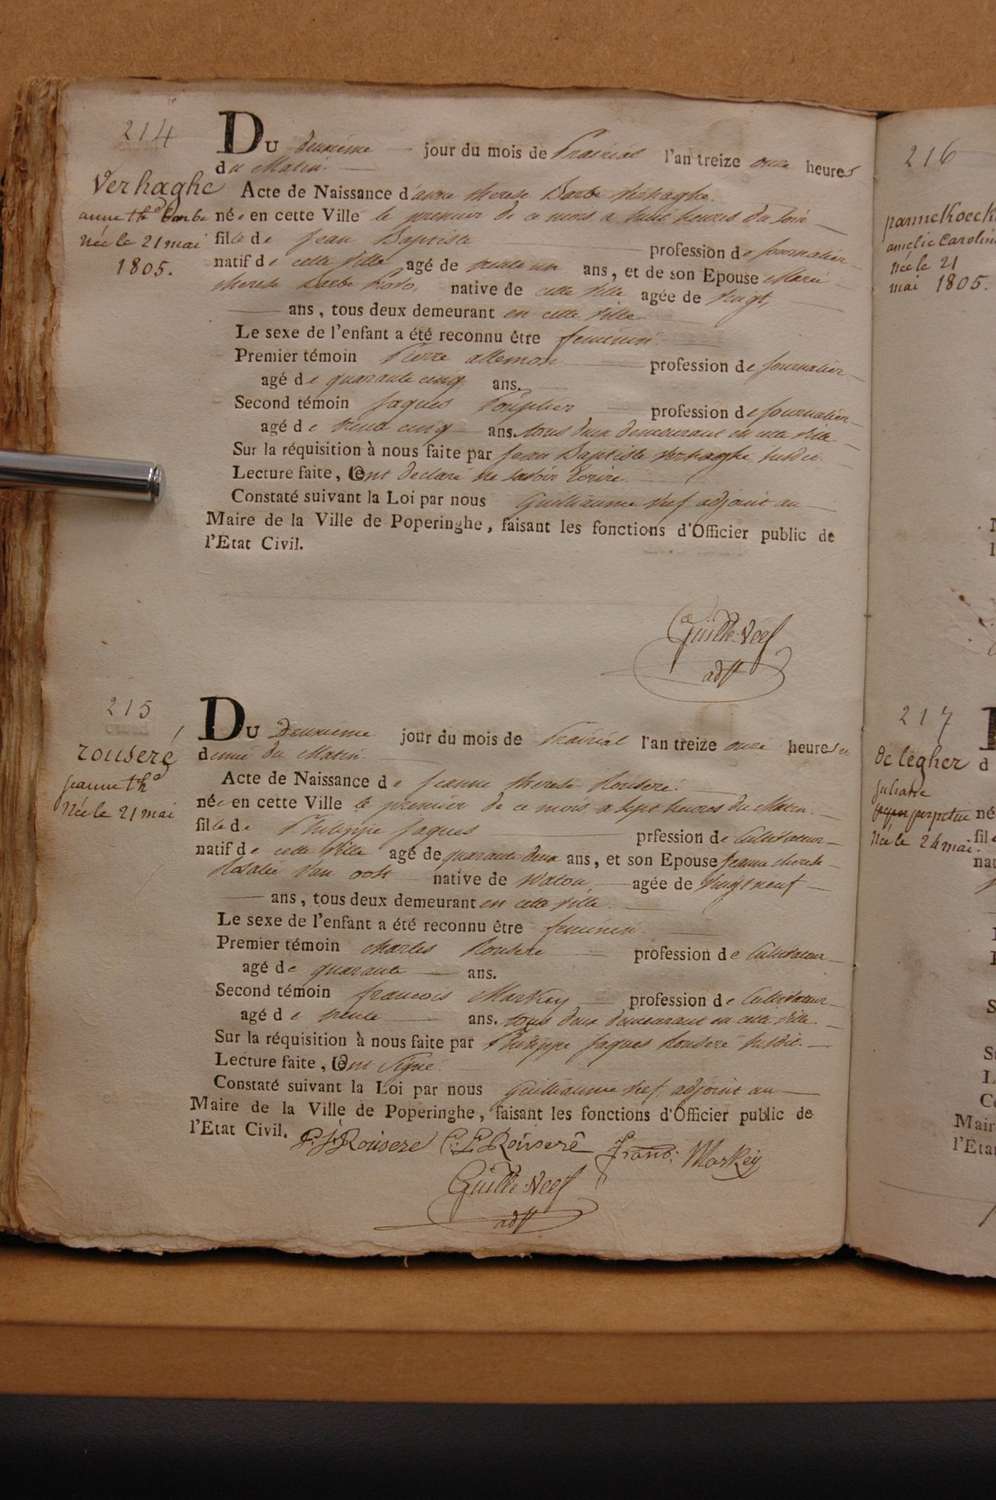 214
Verhaghe
anne th.e barbe
Née le 21 mai
1805.
Du deuxieme jour du mois de Prairial l'an treize onze heures
du Matin.
Acte de Naissance d'anne therese Barbe Verhaghe.
née en cette Ville le premier de ce mois a huit heures du soir
fille de Jean Baptiste profession de journalier
natif de cette ville agé de trente un ans, et de son Epouse Marie
therese Barbe native de cette ville agée de vingt
ans, tous deux demeurant en cette ville.
Le sexe de l'enfant a été reconnu être feminin.
Premier témoin Pierre allemon profession de journalier
agé de quarante cinq ans.
Second témoin Jaques profession de journalier
agé de trente cinq ans. tous deux demeurant en cette ville
Sur la réquisition à nous faite par Jean Baptiste Verhaghe susdit
Lecture faite, ont declaré ne savoir Ecrire.
Constaté suivant la Loi par nous Guillaume Neef adjoint au
Maire de la Ville de Poperinghe, faisant les fonctions d'Officier public de
l'Etat Civil.
Guille. Neef
adjt
215
rouseré
jeanne th.e
Née le 21 mai
Du Deuxieme jour du mois de Prairial l'an treize onze heures et
demie du Matin.
Acte de Naissance de Jeanne therese Rouseré.
née en cette Ville le premier de ce mois a sept heures du Matin.
fille de Philippe Jaques prfession de Cultivateur
natif de cette Ville agé de quarante deux ans, et son Epouse Jeanne therese
Rosalie Van oost native de Watou agée de vingt neuf
ans, tous deux demeurant en cette ville.
Le sexe de l'enfant a été reconnu être feminin.
Premier témoin Charles Rousere profession de Cultivateur
agé de quarante ans.
Second témoin francois Markey profession de Cultivateur
agé de trente ans. tous deux demeurant en cette ville.
Sur la réquisition à nous faite par Philippe Jaques Rousere susdit.
Lecture faite, ont signé.
Constaté suivant la Loi par nous Guilliaume Neef, adjoint au
Maire de la Ville de Poperinghe, faisant les fonctions d'Officier public de
l'Etat Civil. P. J. Rousere C. L. Rouserê Frans: Markey
Guille. Neef
adjt
216
pannekoeck
amelie Caroline
Née le 21
mai 1805.
217
De legher
juliatre
perpetue
Née le 24 mai.